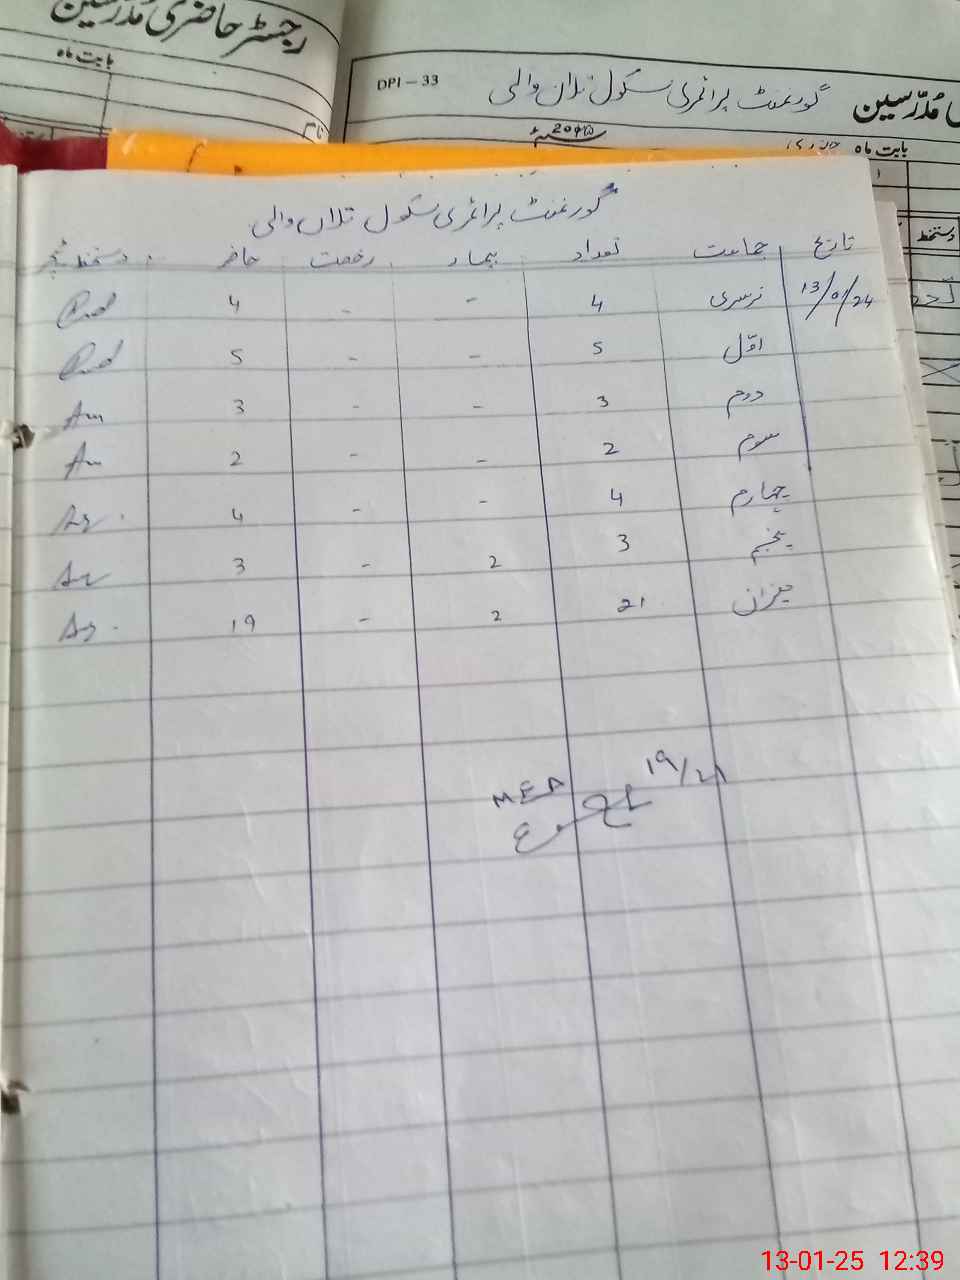 رجسٹر حاضری مدرسین
بابت ماہ
نام
DPI – 33
گورنمنٹ پرائمری سکول تلاں والی
مُدرّسین
2025
بابت ماہ جنوری
دستخط
گورنمنٹ پرائمری سکول تلاں والی
تاریخ جماعت تعداد بیمار رخصت حاضر دستخط ٹیچر
13/01/24 نرسری 4 - - 4
اوّل 5 - - 5
دوم 3 - - 3 Am
سوم 2 - - 2 Am
چہارم 4 - - 4
پنجم 3 2 - 3
میزان 21 2 - 19
MEA 19/21
13-01-25 12:39